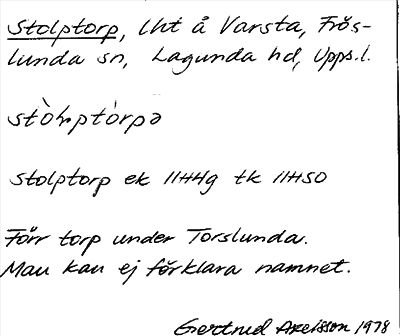 Stolptorp, lht å Varsta, Frös-
lunda sn, Lagunda hd, Upps.l.
Stolptorp ek 11H4g tk 11H50
Förr torp under Torslunda.
Man kan ej förklara namnet.
Gertrud Axelsson 1978